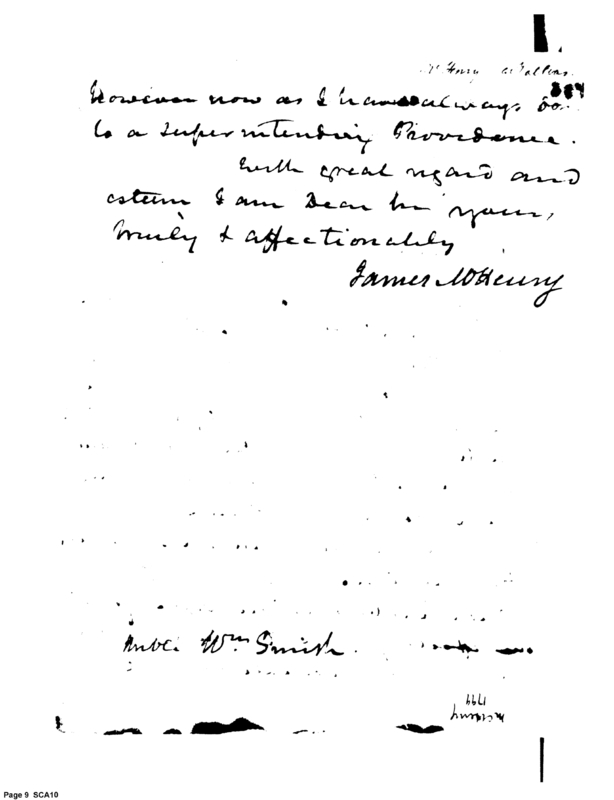 McHenry
384
However now as I have always
to a superintending Providence.
With great regard and
esteem I am Dear Sir yours,
truly & affectionately
James McHenry
Wm. Smith.
1799
McHenry
Page 9 SCA10